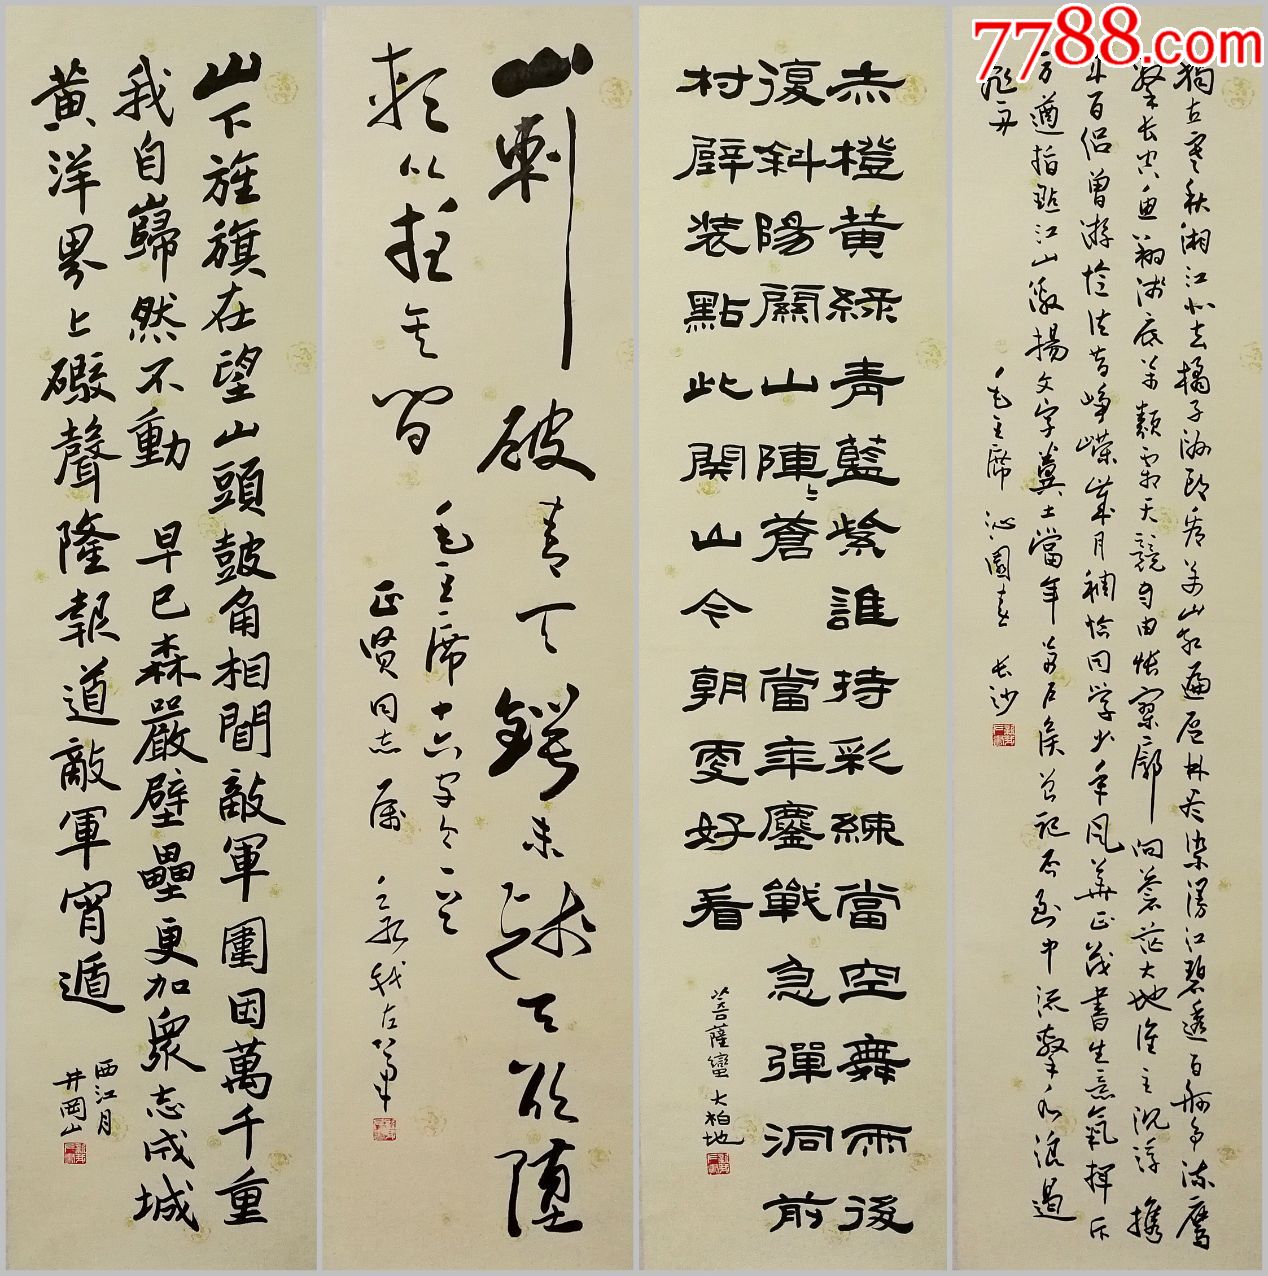 7788.com
獨立寒秋湘江北去橘子洲頭看萬山紅遍層林盡染漫江碧透百舸爭流鷹
擊長空魚翔淺底萬類霜天競自由悵寥廓問蒼茫大地誰主沉浮 攜
來百侶曾游憶往昔崢嶸歲月稠恰同學少年風華正茂書生意氣揮斥
方遒指點江山激揚文字糞土當年萬戶侯曾記否到中流擊水浪遏
飛舟 毛主席 沁園春 長沙
赤橙黄緑青藍紫誰持彩練當空舞雨後
復斜陽關山陣〻蒼 當年鏖戰急彈洞前
村壁装點此関山今朝更好看
菩薩蠻 大柏地
山刺破青天鍔未殘天欲墮
賴以拄其間
毛主席十六字令一首
正贤同志属
左筆
山下旌旗在望山頭鼓角相聞敵軍圍困萬千重
我自巋然不動 早已森嚴壁壘更加衆志成城
黄洋界上礮聲隆報道敵軍宵遁
西江月
井岡山